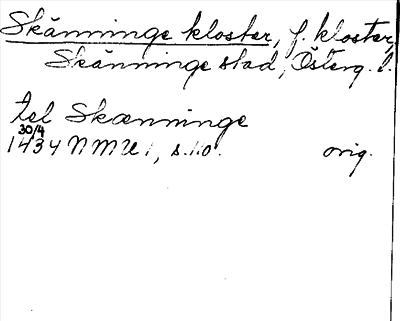 Skänninge kloster, f. kloster,
Skänninge stad, Österg. l.
tel Skænninge
30/4
1434 NMU 1, s. 10. orig.